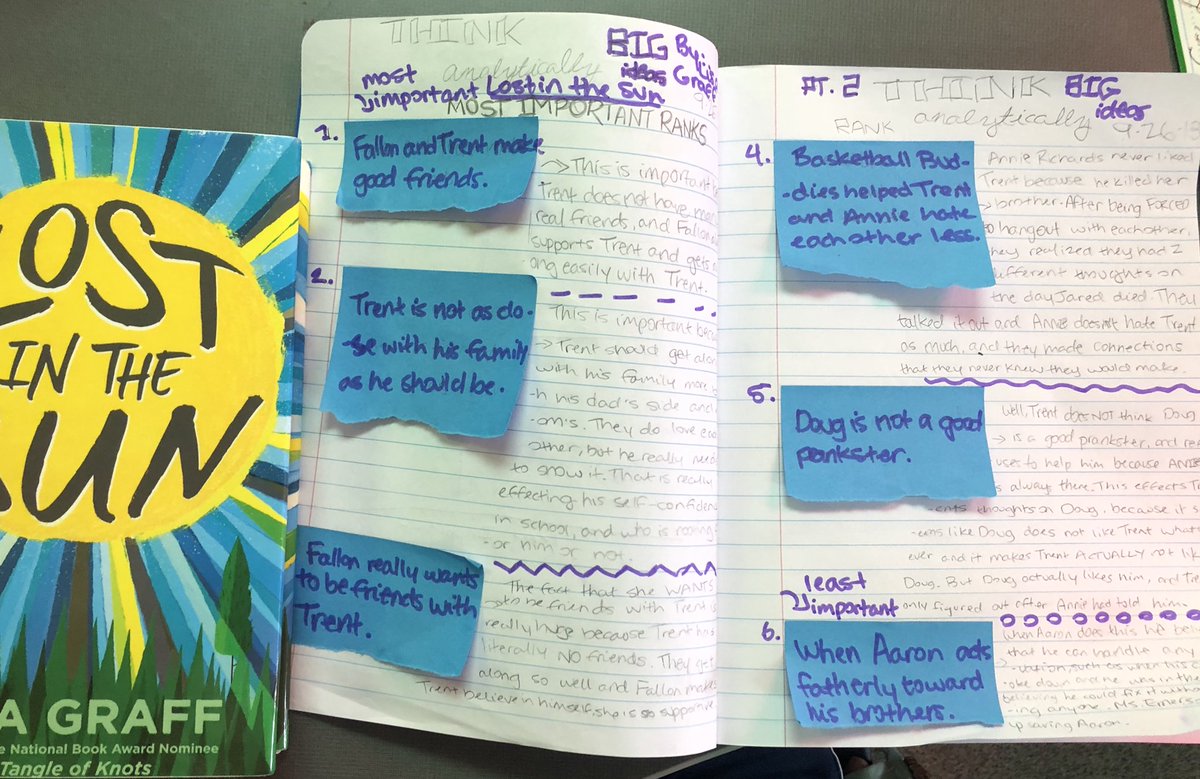 LOST
IN THE
SUN
A GRAFF
National Book Award Nominee
Tangle of Knots
THINK
analytically
BIG
ideas
By:
Graff
most
important
Lost in the Sun
MOST IMPORTANT RANKS
1.
Fallon and Trent make
good friends.
This is important
Trent does not have
real friends, and Fallon
supports Trent and gets
ong easily with Trent.
2.
Trent is not as clo-
-se with his family
as he should be.
This is important
Trent should get
with his family more
-h his dad's side and
-om's. They do love
other, but he really
to show it. That is really
effecting his self-confiden
in school, and who is
-or him or not.
Fallon really wants
to be friends with
Trent.
The fact that she WANTS
to be friends with Trent is
really huge because Trent has
literally NO friends. They get
along so well and Fallon makes
Trent believe in himself, she is so supportive
PT. 2
THINK
analytically
BIG
ideas
9.26
RANK
4.
Basketball Bud-
-dies helped Trent
and Annie hate
eachother less.
Annie Richards never liked
Trent because he killed her
brother. After being FORCED
to hangout with eachother
they realized they had 2
different thoughts on
the day Jared died. They
talked it out and Annie doesn't hate Trent
as much, and they made connections
that they never knew they would make.
5.
Doug is not a good
pankster.
Well, Trent does NOT think Doug
is a good prankster, and
uses to help him because Annie
is always there. This effects
-ents thoughts on Doug, because it
-eems like Doug does not like Trent what
ever and it makes Trent ACTUALLY not like
Doug. But Doug actually likes him, and
only figured out after Annie had told him.
least
important
6.
When Aaron acts
fatherly toward
his brothers.
When Aaron does this he
that he can handle any
-uation, such as when his
-oke down and he was in the
believing he could fix it
-ing anyone. Ms.
up saving Aaron.